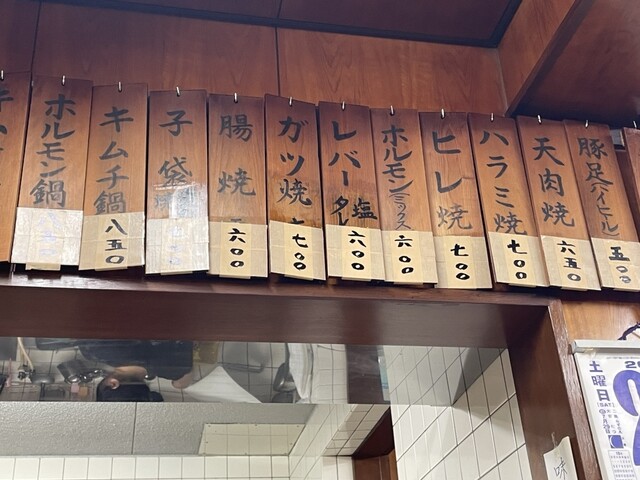 ホルモン鍋
キムチ鍋 八五〇
子袋
腸焼 六〇〇
ガツ焼 七〇〇
レバー焼 塩 タレ 六〇〇
ホルモン(ミックス) 六〇〇
ヒレ焼 七〇〇
ハラミ焼 七〇〇
天肉焼 六五〇
豚足(ハイヒール) 五〇〇
土曜日
(SAT)
味